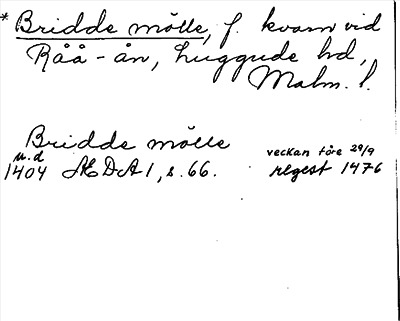 * Bridde mölle, f. kvarn vid
Råå-ån, Luggude hd,
Malm. l.
Bridde mölle
u. d
1404 ÆDA 1, s. 66.
veckan före 29/9
regest 1476